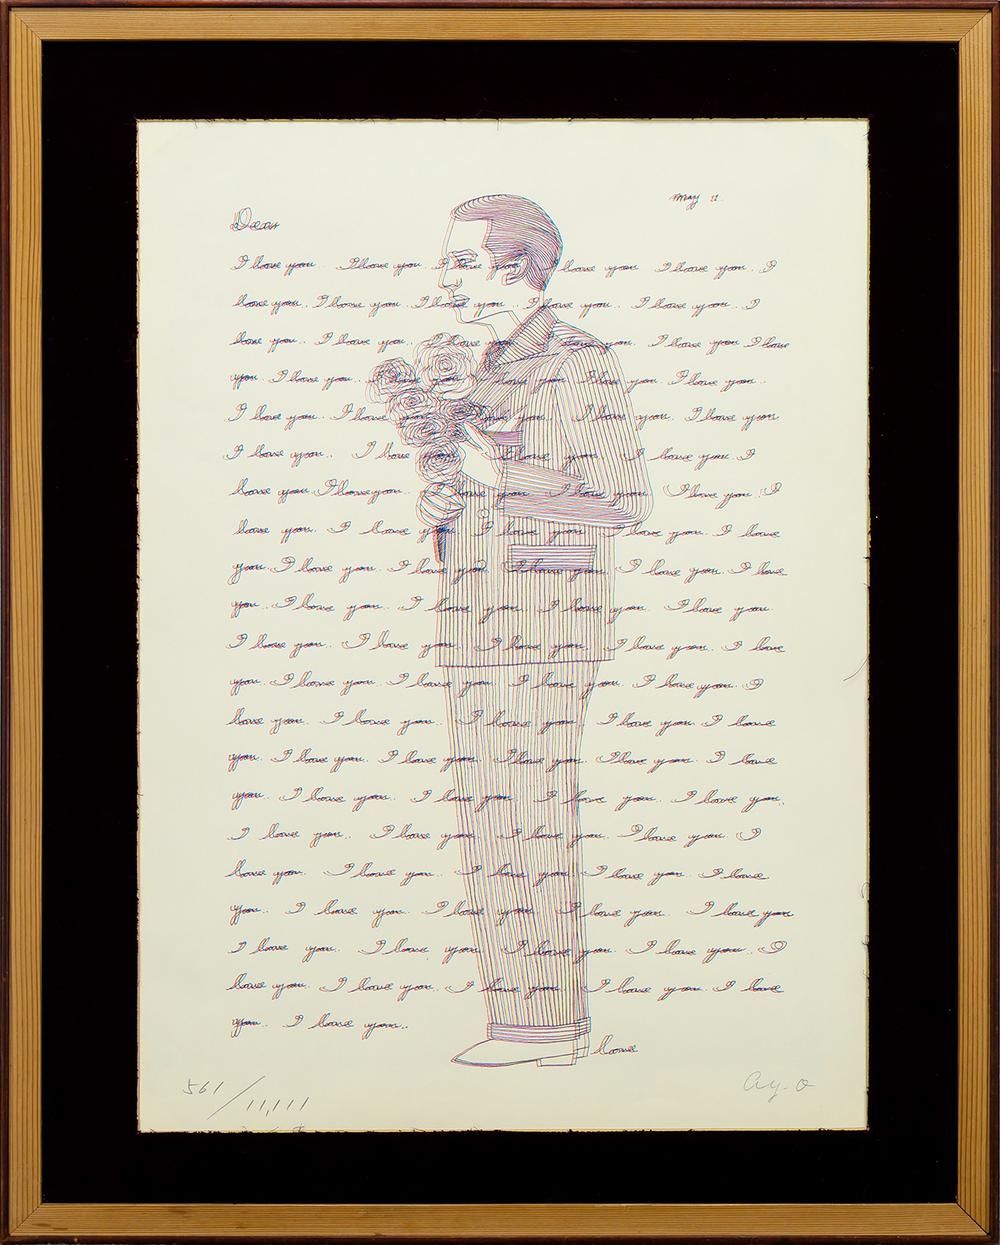 May 11
Dear
I love you.. I love you. I love you. I love you I love you.. I
love you.. I love you.. I love you.. I love you.. I love you.. I
love you.. I love you.. I love you. I love you. I love you I love
you. I love you.. I love you. I love you I love you. I love you..
I love you. I love you. I love you. I love you. I love you
I love you.. I love you. I love you. I love you. I
love you. I love you.. I love you. I love you. I love you. I
love you. I love you. I love you. I love you. I love
you. I love you. I love you. I love you. I love you. I love
you.. I love you. I love you. I love you. I love you.
I love you. I love you. I love you. I love you. I love
you. I love you. I love you. I love you. I love you. I
love you. I love you.. I love you. I love you. I love
you. I love you. I love you. I love you. I love you. I love
you. I love you.. I love you. I love you. I love you.
I love you.. I love you. I love you. I love you. I
love you. I love you. I love you. I love you. I love
you.. I love you. I love you. I love you. I love you
I love you. I love you. I love you. I love you.. I
love you.. I love you. I love you. I love you. I love
you.. I love you..
love
561/11,111
Ay-O